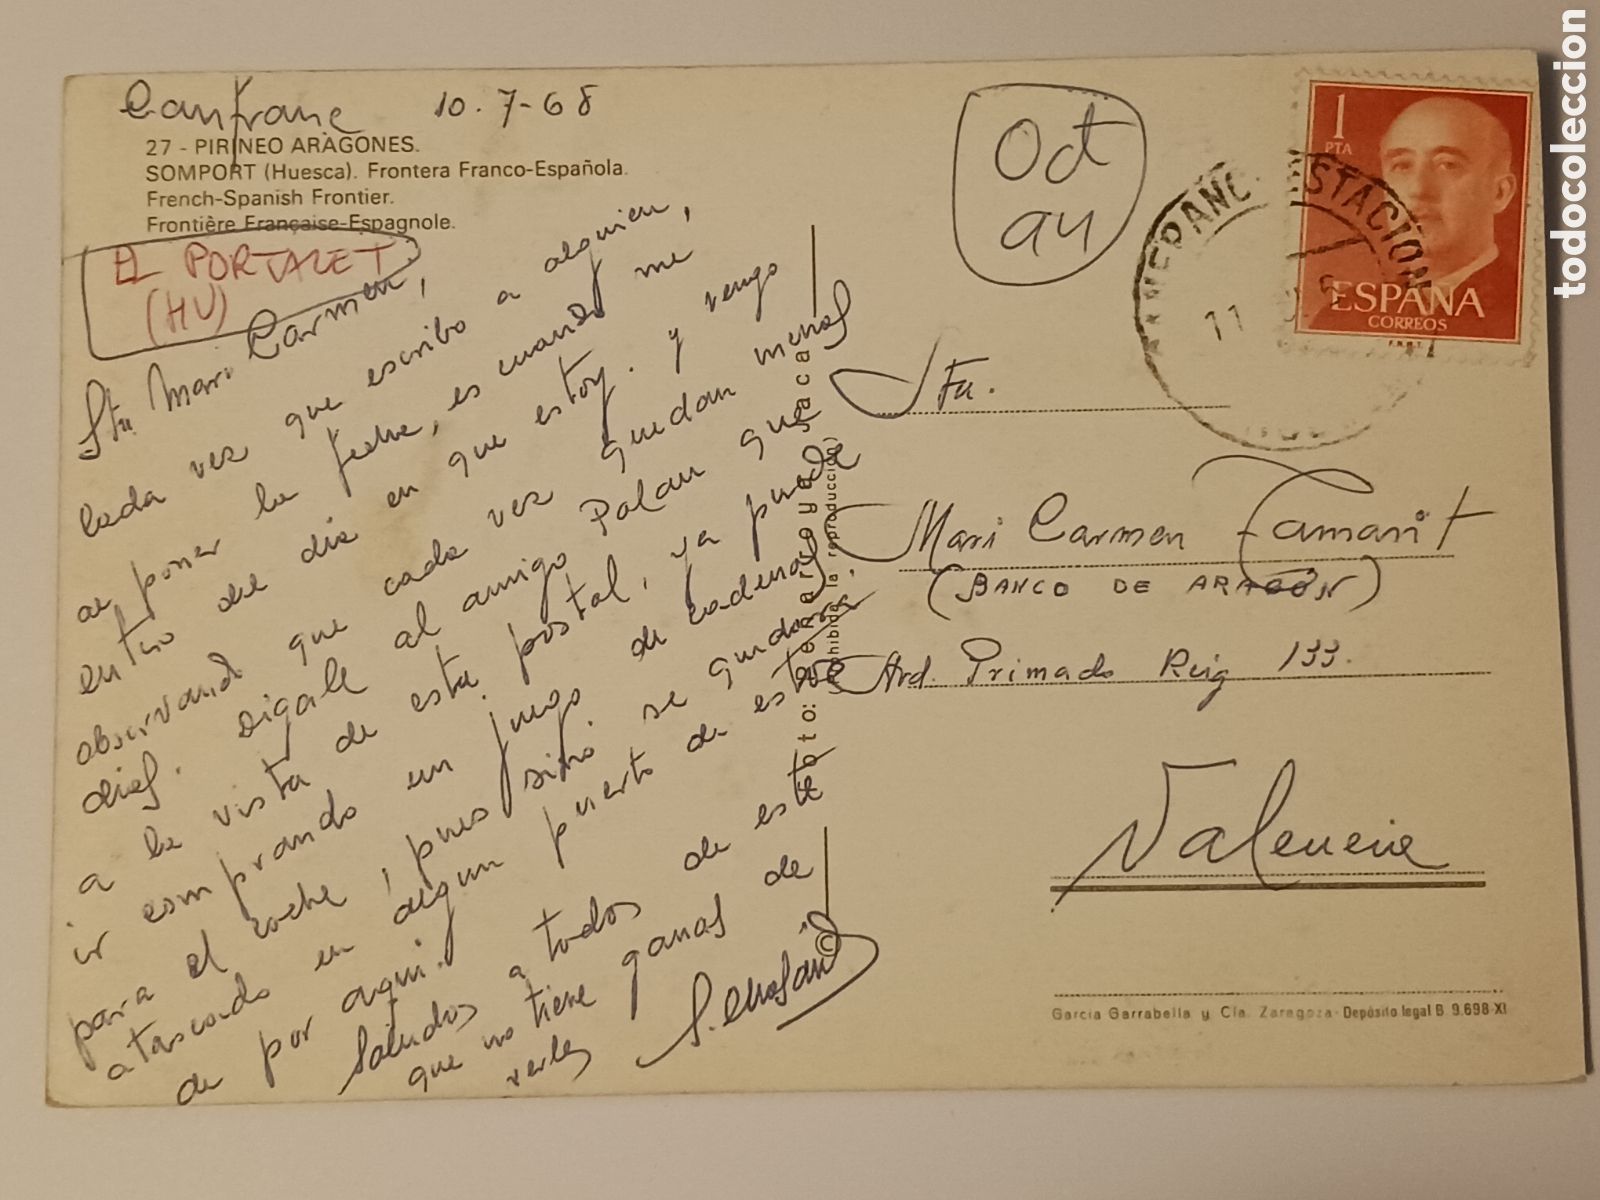 Canfranc 10.7-68
27 - PIRINEO ARAGONES.
SOMPORT (Huesca). Frontera Franco-Española.
French-Spanish Frontier.
Frontière Française-Espagnole.
EL PORTALET
(HU)
Sta. Mari Carmen,
Cada vez que escribo a alguien,
al poner la fecha, es cuando me
entro de dia en que estoy. y vengo
observando que cada vez quedan menos
dias. Digale al amigo Palau que
a la vista de esta postal, ya puede
ir comprando un juego de cadenas
para el coche, pues sino se quedara
atascado en algun puerto de estos
de por aqui.
Saludos a todos de este
que no tiene ganas de
verles
Foto: Peñarroya Jaca
(Prohibida la reproducción)
©
Od
au
1
PTA
ESPAÑA
CORREOS
F.N.M.T.
CANFRANC-ESTACION
11
Sta.
Mari Carmen Tamarit
(BANCO DE ARAGÓN)
Avd. Primado Reig 133.
Valencia
García Garrabella y Cía. Zaragoza - Depósito legal B. 9.698-XI
todocoleccion